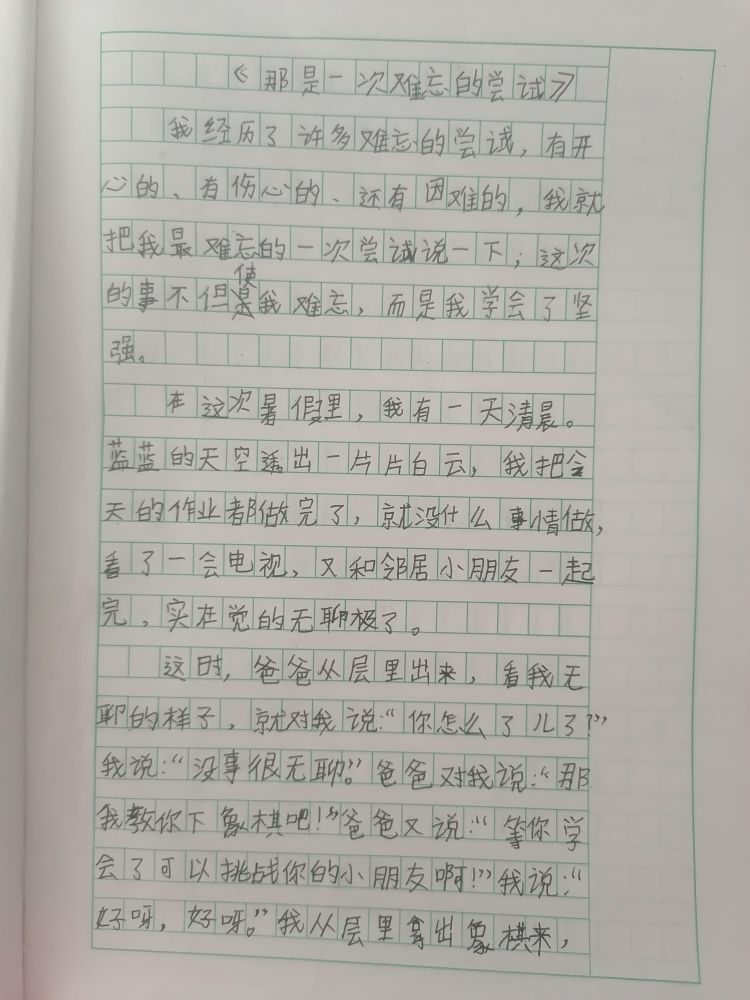 《那是一次难忘的尝试》
我经历了许多难忘的尝试，有开
心的、有伤心的、还有困难的，我就
把我最难忘的一次尝试说一下；这次
的事不但使我难忘，而是我学会了坚
强。
在这次暑假里，我有一天清晨。
蓝蓝的天空透出一片片白云，我把今
天的作业都做完了，就没什么事情做，
看了一会电视，又和邻居小朋友一起
完，实在觉的无聊极了。
这时，爸爸从屋里出来，看我无
聊的样子，就对我说：“你怎么了儿了？”
我说：“没事很无聊。”爸爸对我说：“那
我教你下象棋吧！”爸爸又说：“等你学
会了可以挑战你的小朋友啊！”我说：“
好呀，好呀。”我从屋里拿出象棋来，